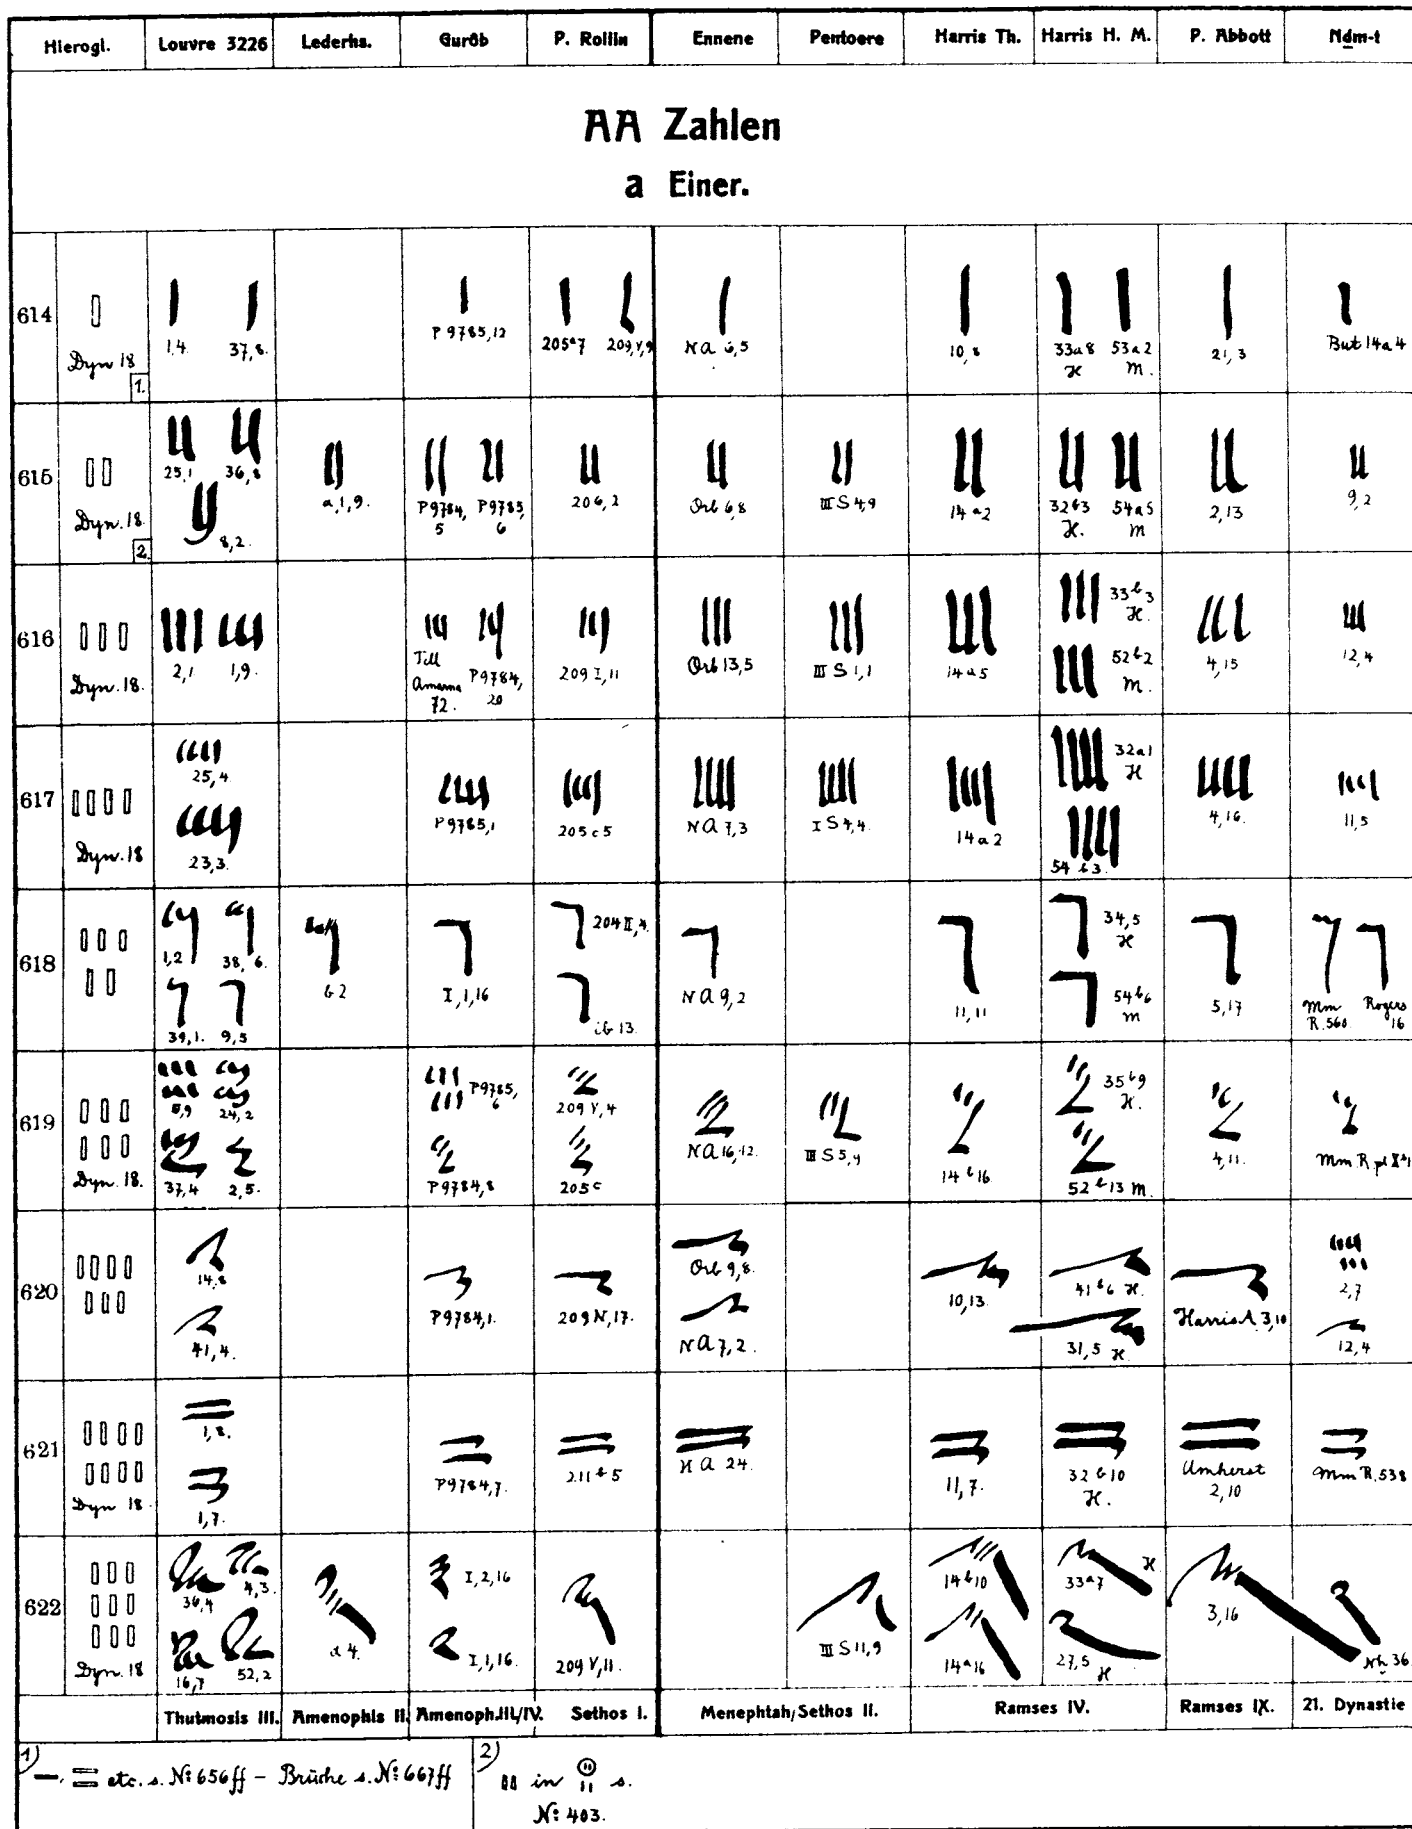 Hierogl. Louvre 3226 Lederhs. Gurôb P. Rollin Ennene Pentoere Harris Th. Harris H. M. P. Abbott Nḏm-t
AA Zahlen
a Einer.
614 Dyn 18 1. 1,4. 37,8. P 9785,12 205a7 209,V,9 NA 6,5 10,8 33a8 H 53a2 M. 21,3 But 14a4
615 Dyn. 18. 2. 25,1 36,8 8,2. a,1,9. P9784,5 P9785,6 206,2 Orb 6,8 III S 4,9 14a2 32b3 H. 54a5 M 2,13 9,2
616 Dyn. 18. 2,1 1,9. Tell Amarna 72. P9784,20 209 I,11 Orb 13,5 III S 1,1 14a5 33b3 H. 52b2 M. 4,15 12,4
617 Dyn. 18 25,4 23,3. P9785,1 205c5 NA 7,3 I S 4,4. 14a2 32a1 H 54b3. 4,16. 11,5
618 1,2 38,6. 39,1. 9,5 b2 I,1,16 204 II,4. ib 13. NA 9,2 11,11 34,5 H 54b6 M 5,17 Mm R.560 Rogers 16
619 Dyn. 18. 5,9 24,2 37,4 2,5. P9785,6 P9784,8 209 V,4 205c NA 16,12. III S 5,4 14b16 35b9 H. 52b13 M. 4,11. Mm R.
620 14,8 41,4. P9784,1. 209 N,17. Orb 9,8. NA 7,2. 10,13. 41b6 H. 31,5 H. Harris A. 3,10 2,7 12,4
621 Dyn 18. 1,8. 1,7. P9784,7. 211b5 NA 24. 11,7. 32b10 H. Amherst 2,10 Mm R.538
622 Dyn. 18 36,4 4,3. 16,7 52,2 a 4. I,2,16 I,1,16. 209 V,11. III S 11,9 14b10 14a16 33a7 H 27,5 H 3,16 Nḥ 36.
Thutmosis III. Amenophis II. Amenoph. III./IV. Sethos I. Menephtah/Sethos II. Ramses IV. Ramses IX. 21. Dynastie
1) etc. s. No 656ff – Brüche s. No 667ff
2) in s.
No 403.